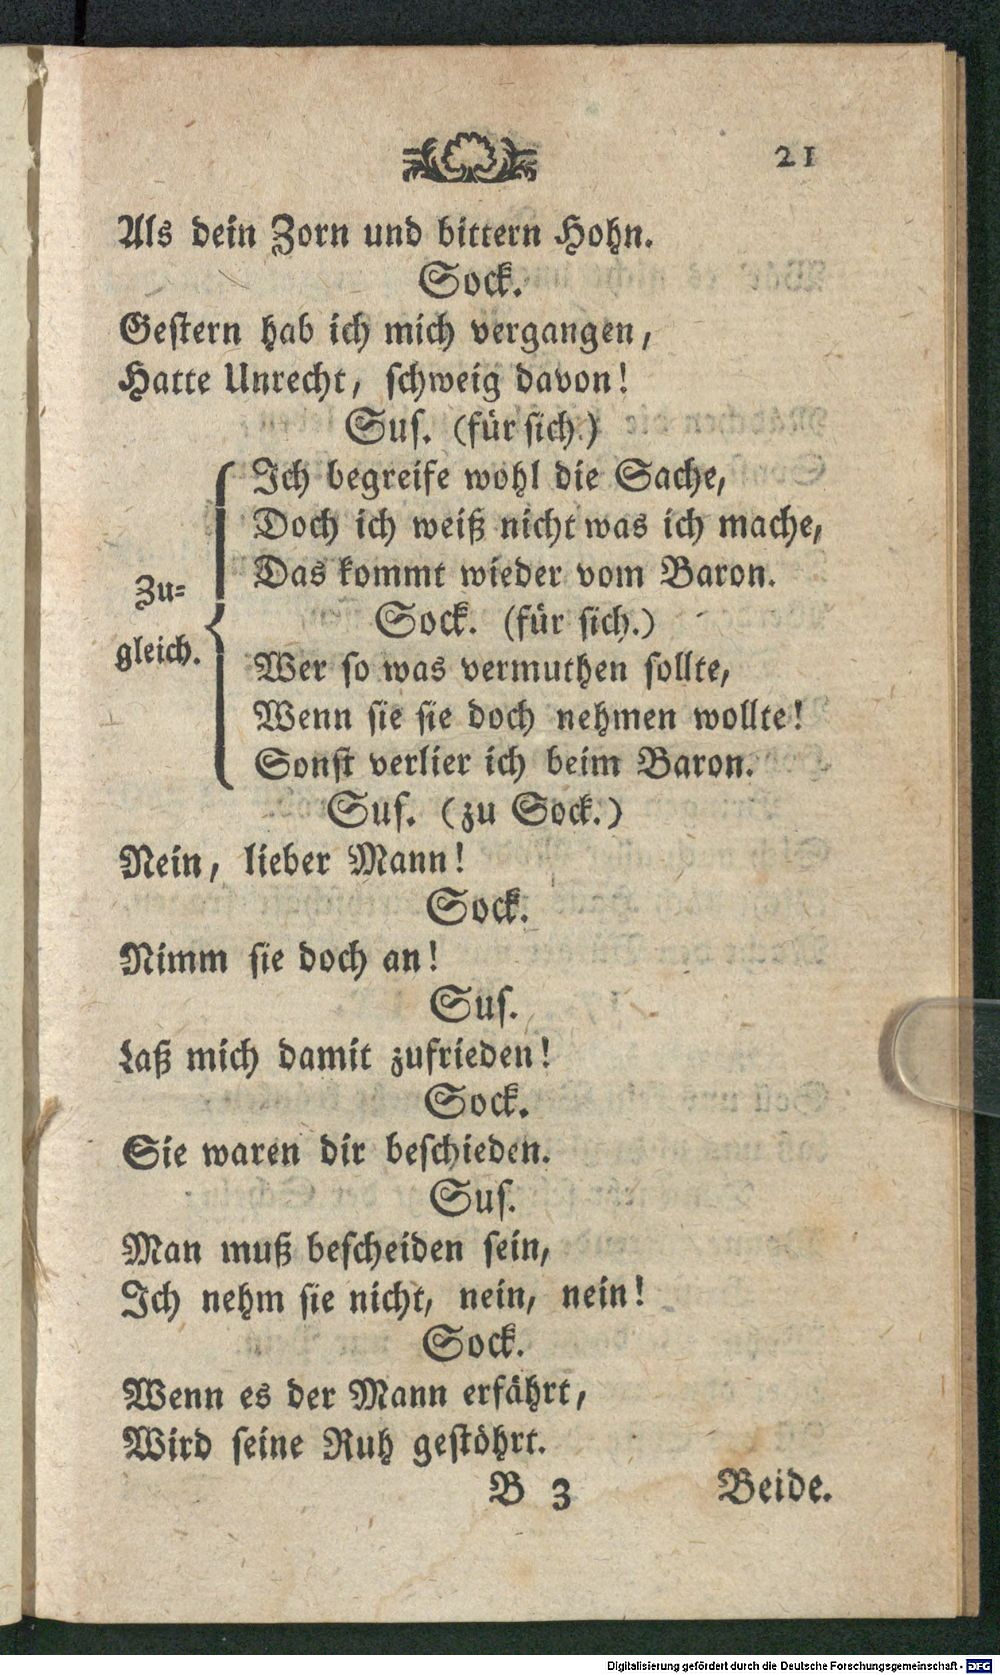 21
Als dein Zorn und bittern Hohn.
Sock.
Gestern hab ich mich vergangen,
Hatte Unrecht, schweig davon!
Sus. (für sich.)
Ich begreife wohl die Sache,
Doch ich weiß nicht was ich mache,
Das kommt wieder vom Baron.
Sock. (für sich.)
Wer so was vermuthen sollte,
Wenn sie sie doch nehmen wollte!
Sonst verlier ich beim Baron.
Zu=
gleich.
Sus. (zu Sock.)
Nein, lieber Mann!
Sock.
Nimm sie doch an!
Sus.
Laß mich damit zufrieden!
Sock.
Sie waren dir beschieden.
Sus.
Man muß bescheiden sein,
Ich nehm sie nicht, nein, nein!
Sock.
Wenn es der Mann erfährt,
Wird seine Ruh gestöhrt.
B 3 Beide.
Digitalisierung gefördert durch die Deutsche Forschungsgemeinschaft - DFG